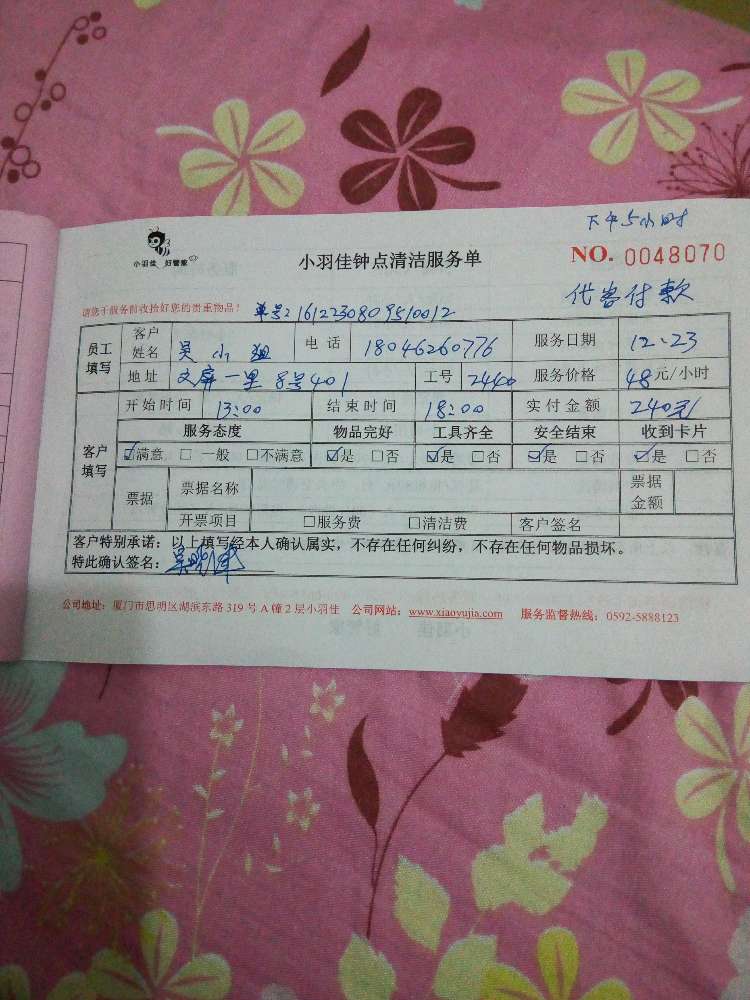 下午5小时
小羽佳 好管家
小羽佳钟点清洁服务单
NO. 0048070
代客付款
请您于服务前收拾好您的贵重物品!
单号:161223080951​0012
员工填写 客户姓名 吴小姐 电话 18046260776 服务日期 12.23
地址 文屏一里8号401 工号 2440 服务价格 48元/小时
客户填写 开始时间 13:00 结束时间 18:00 实付金额 240元
服务态度 物品完好 工具齐全 安全结束 收到卡片
☑满意 □一般 □不满意 ☑是 □否 ☑是 □否 ☑是 □否 ☑是 □否
票据 票据名称 票据金额
开票项目 □服务费 □清洁费 客户签名
客户特别承诺:以上填写经本人确认属实,不存在任何纠纷,不存在任何物品损坏。
特此确认签名:
公司地址:厦门市思明区湖滨东路319号A幢2层小羽佳 公司网站:www.xiaoyujia.com 服务监督热线:0592-5888123